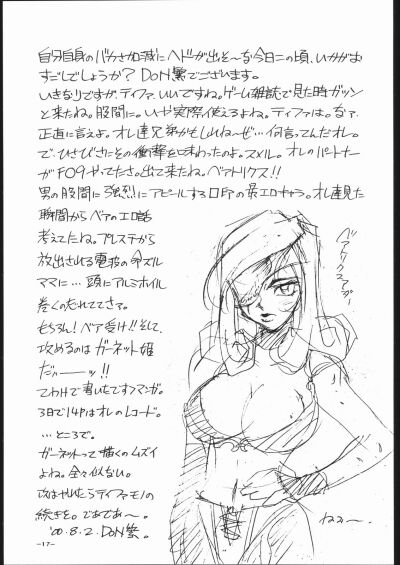 自分自身のバカさ加減にヘドが出そ〜な今日この頃、いかがお
すごしでしょうか? DON繁でございます。
いきなりですが、ティファ、いいですね。ゲーム雑誌で見た時ガツン
と来たね。股間に。いや実際使えるよね。ティファは。なァ、
正直に言えよ。オレ達兄弟かもしれね〜ぜ…何言ってんだオレ。
で、ひさびさにその衝撃を味わったのよ。スメル。オレのパートナー
がFO9やってたさ。出て来たね。ベアトリクス!!
男の股間に強烈にアピールする
の最エロキャラ。オレ達見た
瞬間からベアのエロ話
考えてたね。プレステから
放出される電波の命ズル
ママに…頭にアルミホイル
巻くの忘れててさァ。
もちろん!ベア受け!!そして、
攻めるのはガーネット姫
だァーーッ!!
てわけで書いたですマンガ。
3日で14Pはオレのレコード。
…ところで。
ガーネットって描くのムズイ
よね。全々似ない。
次はやれたらティファモノの
続きを。であであ〜。
'00.8.2.DON繁。
-17-
ベアトリクスアゲ〜
ねね〜